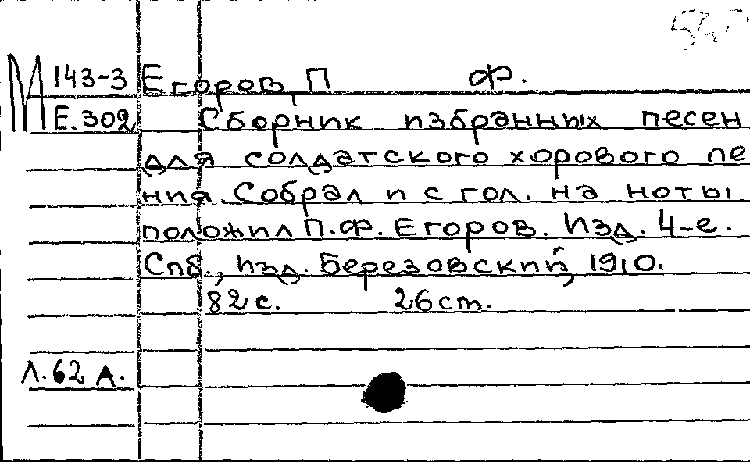 М 143-3 Егоров, П Ф.
Е.302 Сборник избранных песен
для солдатского хорового пе
ния. Собрал и с гол. на ноты
положил П.Ф. Егоров. Изд. 4-е.
Спб., Изд. Березовский, 1910.
82 с. 26 ст.
Л.62 А.